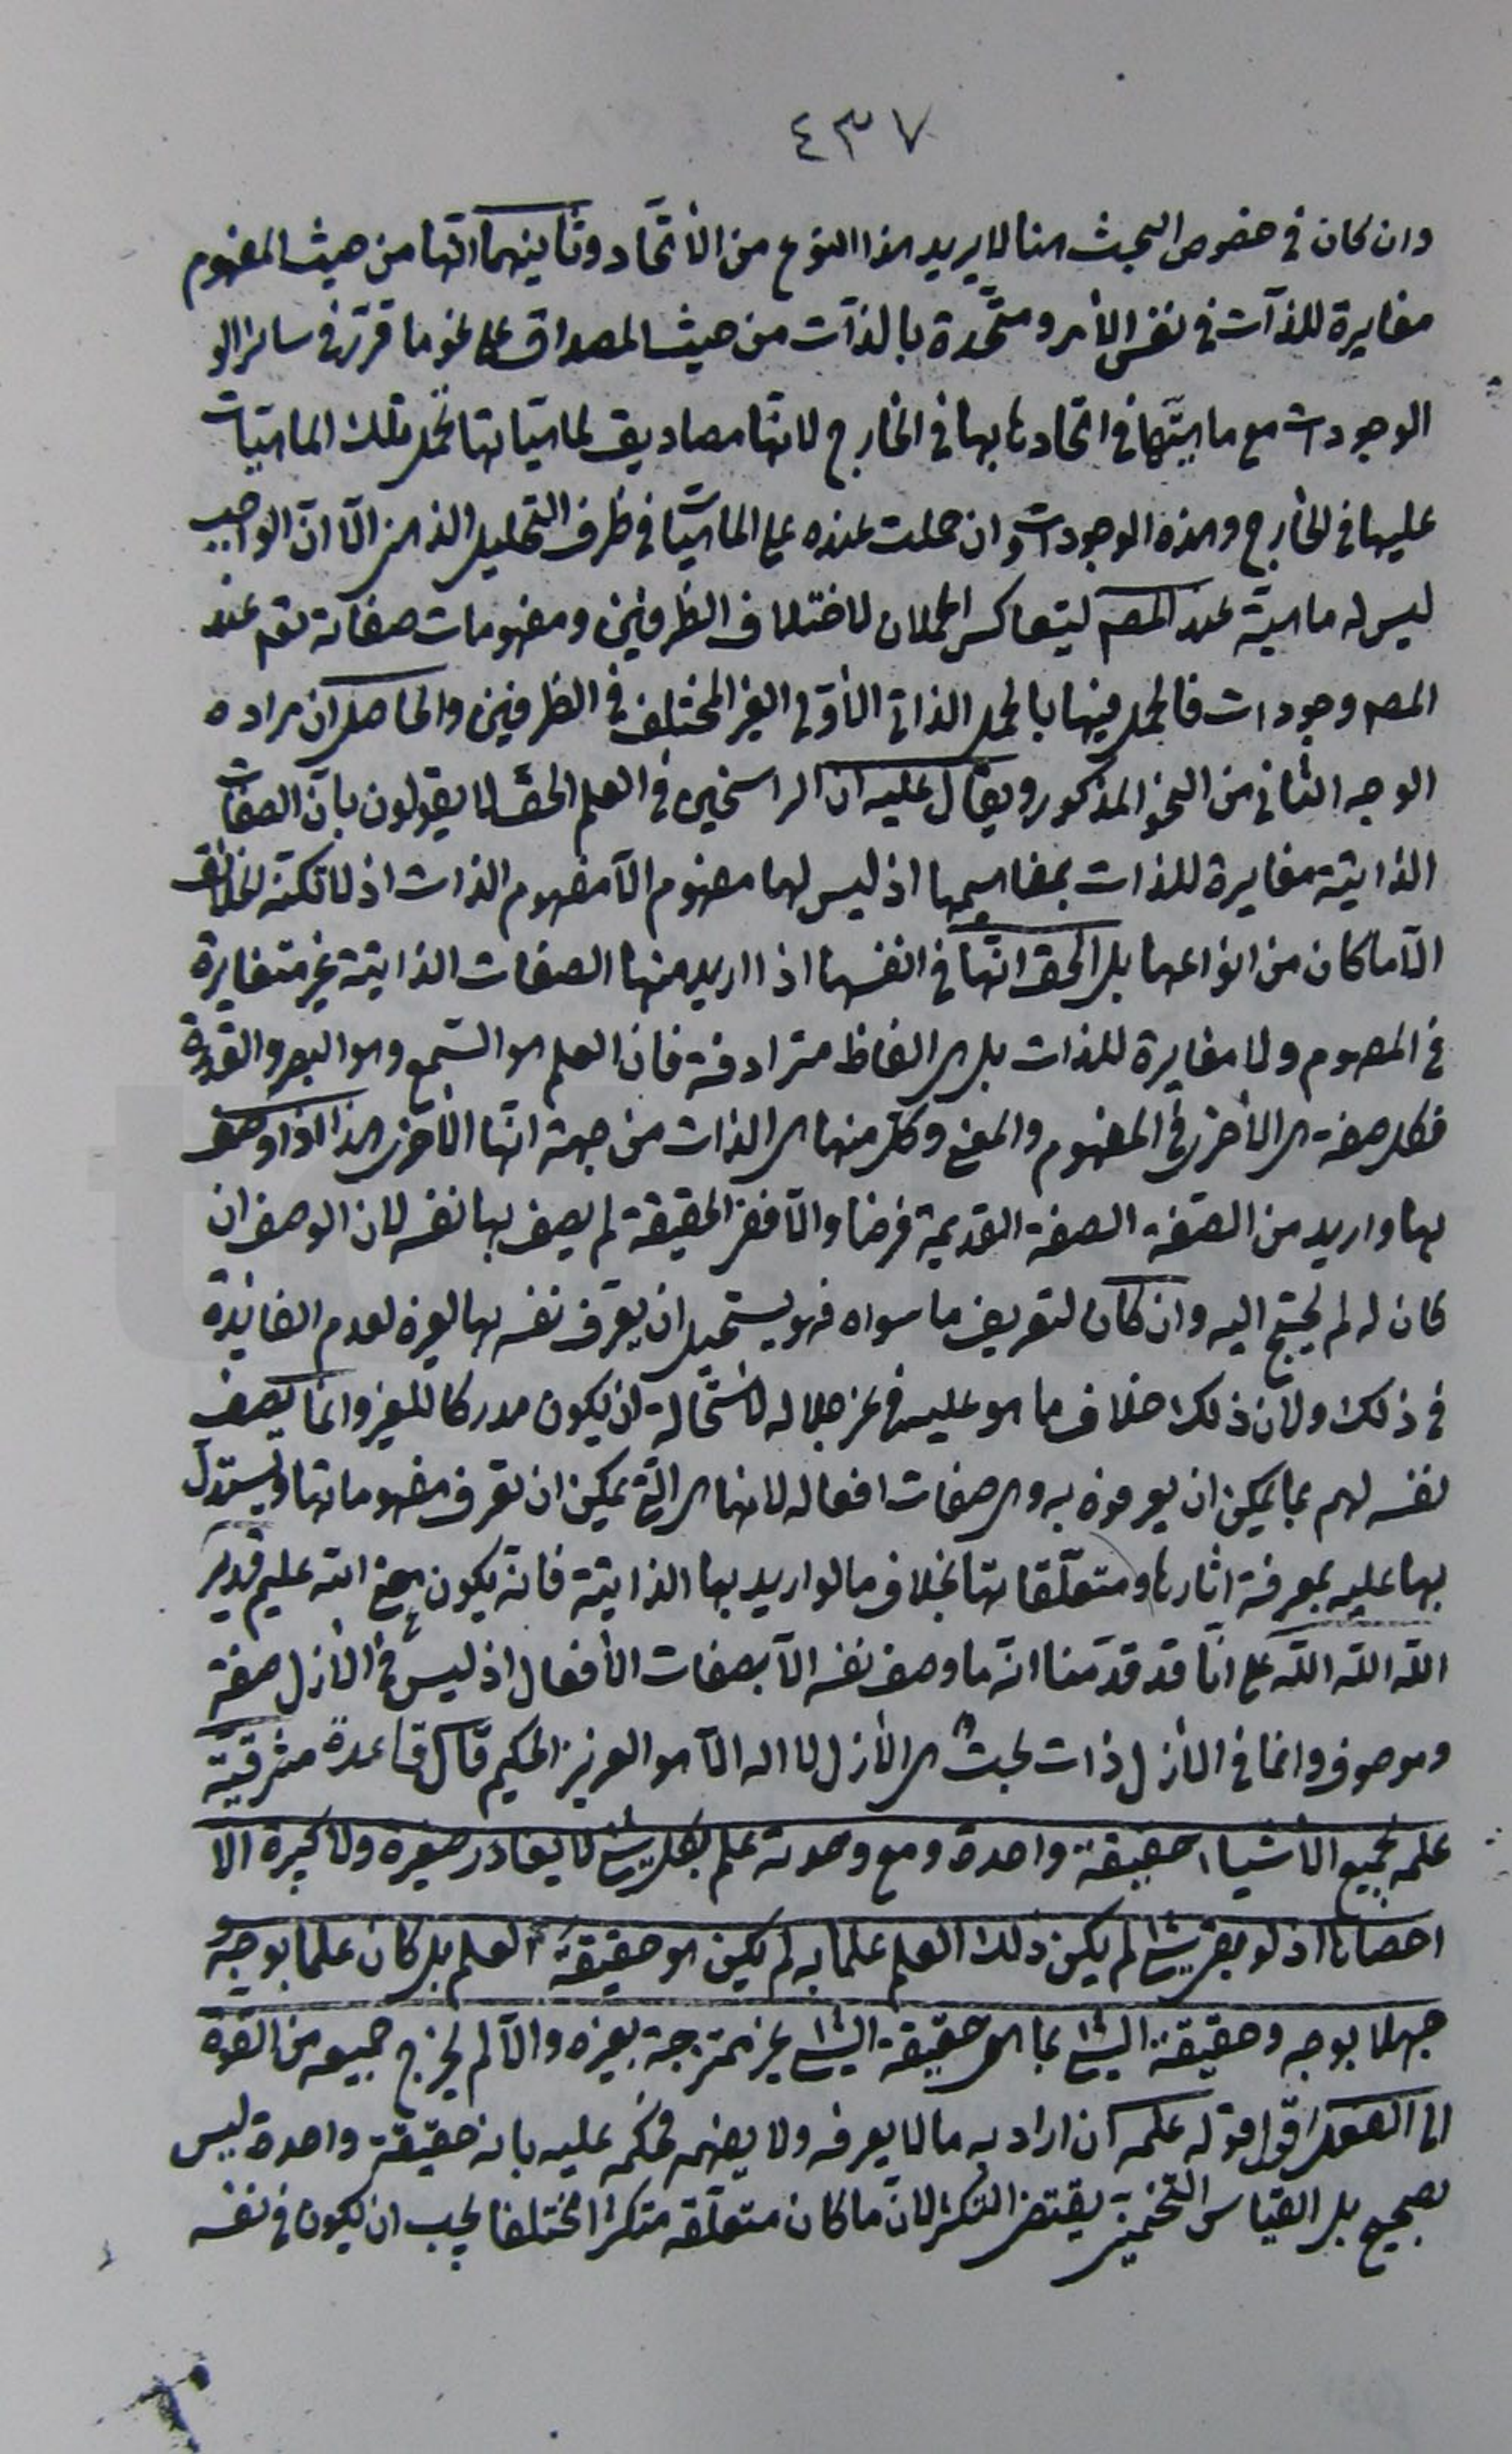 ٤٣٧
وان كان في خصوص البحث هنا لا يريد هذا النوع من الأتحاد وثانيهما انها من حيث المفهوم
مغايرة للذات في نفس الأمر ومتحدة بالذات من حيث المصداق على نحو ما قرر في ساير الو
الوجودات مع ماهيتها في اتحادها بها في الخارج لانها مصاديق لماهياتها تحمل تلك الماهيات
عليها في الخارج وهذه الوجودات وان حملت عنده على الماهيات في ظرف التحليل الذهني الّا انّ الواجب
ليس له ماهية عند المصم ليتعاكس الحملان لاختلاف الظرفين ومفهومات صفاته تعم عند
المصم وجودات فالحمل فيها بالحمل الذاتي الأولى الغير المختلف في الظرفين والحاصل ان مراده
الوجه الثاني من النحو المذكور ويقال عليه ان الراسخين في العلم الحق لا يقولون بأن الصفات
الذاتية مغايرة للذات بمفاهيمها اذ ليس لها مفهوم الّا مفهوم الذات اذ لا تكثر
الّا ما كان من انواعها بل الحق انّها في انفسها اذا اريد منها الصفات الذاتية غير متغايرة
في المفهوم ولا مغايرة للذات بل هي الفاظ مترادفة فان العلم هو السّمع وهو البصر والقدرة
فكل صفة هي الأخرى في المفهوم والمعنى وكل منها هي الذات من جهة انها الأخرى هذا اذا وصف
بها واريد من الصّفة الصفة القديمة فرضا والّا ففي الحقيقة لم يصف بها نفسه لان الوصف ان
كان له لم يحتج اليه وان كان لتعريف ما سواه فهو يستحيل ان يعرّف نفسه بها لغيره لعدم الفائدة
في ذلك ولان ذلك خلاف ما هو عليه في عز جلاله لاستحالة ان يكون مدركا للغير وانما يصف
نفسه لهم بما يمكن ان يعرفوه به وهي صفات افعاله لانها هي الّتي يمكن ان تعرف مفهوماتها ويستدل
بها عليه بمعرفة اثارها ومتعلّقاتها بخلاف ما لو اريد بها الذاتية فانه يكون معنى الله عليم قدير
الله الله الله على انّا قد قدّمنا انه ما وصف نفسه الّا بصفات الأفعال اذ ليس في الأزل صفة
وموصوف وانما في الأزل ذات بحت هي الأزل لا اله الّا هو العزيز الحكيم قال قاعدة مشرقية
علمه بجميع الأشياء حقيقة واحدة ومع وحدته علم بكل شئ لا يغادر صغيرة ولا كبيرة الا
احصاها اذ لو بقي شئ لم يكن ذلك العلم علما به لم يكن هو حقيقة العلم بل كان علما بوجه و
جهلا بوجه وحقيقة الشئ بما هي حقيقة الشئ غير ممتزجة بغيره والّا لم يخرج جميعه من القوة
الى الفعل اقول قوله علمه ان اراد به ما لا يعرفه ولا يفهمه فحكمه عليه بانه حقيقة واحدة ليس
بصحيح بل القياس التخميني يقتضي التكثر لانّ ما كان متعلّقه متكثرا مختلفا يجب ان يكون في نفسه